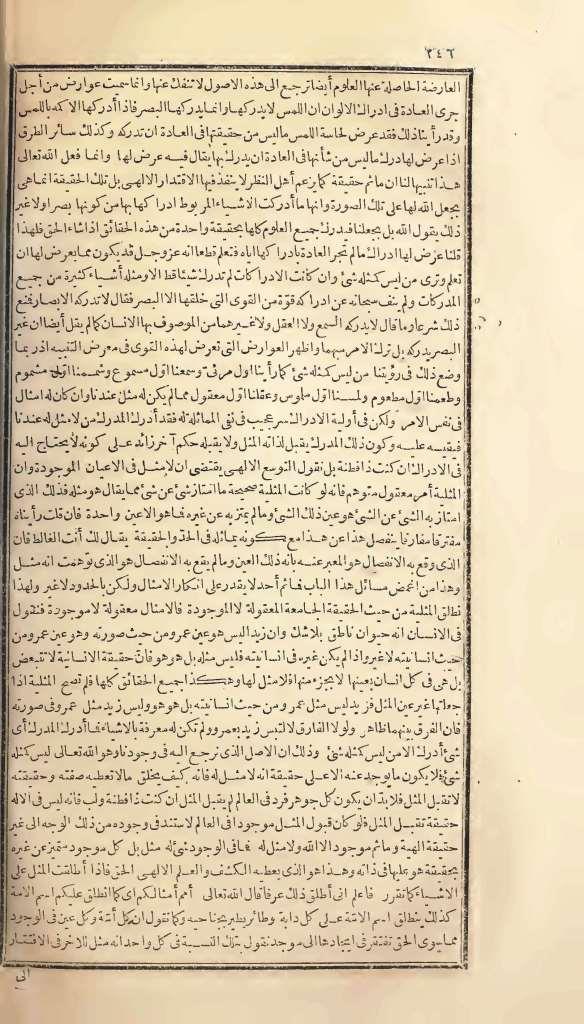 ٢٤٦
العارضة الحاصلة عنها العلوم أيضا ترجع الى هذه الاصول لا تنفك عنها وانما سميت عوارض من أجل
جرى العادة فى ادراك الالوان ان اللمس لا يدركها وانما يدركها البصر فاذا أدركها الاكمه باللمس
وقد رأينا ذلك فقد عرض لحاسة اللمس ما ليس من حقيقتها فى العادة ان تدركه وكذلك سائر الطرق
اذا عرض لها درك ما ليس من شأنها فى العادة ان يدرك بها يقال فيه عرض لها وانما فعل الله تعالى
هذا تنبيها لنا ان ما ثم حقيقة كما يزعم أهل النظر لا ينفذ فيها الاقتدار الالهى بل تلك الحقيقة انما هى
بجعل الله لها على تلك الصورة وانها ما أدركت الاشياء المربوط ادراكها بها من كونها بصرا ولا غير
ذلك يقول الله بل بجعلنا فيدرك جميع العلوم كلها بحقيقة واحدة من هذه الحقائق اذا شاء الحق فلهذا
قلنا عرض لها ادراك ما لم تجر العادة بادراكها اياه فنعلم قطعا انه عز وجل قد يكون مما يعرض لها ان
تعلم وترى من ليس كمثله شئ وان كانت الادراكات لم تدرك شيئا قط الا ومثله أشياء كثيرة من جميع
المدركات ولم ينف سبحانه عن ادراكه قوة من القوى التى خلقها الا البصر فقال لا تدركه الابصار فنع
ذلك شرعا وما قال لا يدركه السمع ولا العقل ولا غيرهما من الموصوف بها الانسان كما لم يقل أيضا ان غير
البصر يدركه بل ترك الامر مبهما وأظهر العوارض التى تعرض لهذه القوى فى معرض التنبيه انه ربما
وضع ذلك فى رؤيتنا من ليس كمثله شئ كما رأينا أول مرئى وسمعنا أول مسموع وشممنا أول مشموم
وطعمنا أول مطعوم ولمسنا أول ملموس وعقلنا أول معقول مما لم يكن له مثل عندنا وان كان له امثال
فى نفس الامر ولكن فى أولية الادراك سر عجيب فى نفى المماثلة له فقد أدرك المدرك من لا مثل له عندنا
فيقيسه عليه وكون ذلك المدرك يقبل لذاته المثل ولا يقبله حكم آخر زائد على كونه لا يحتاج اليه
فى الادراك ان كنت ذا فطنة بل نقول التوسع الالهى يقتضى ان لا مثل فى الاعيان الموجودة وان
المثلية أمر معقول متوهم فانه لو كانت المثلية صحيحة ما امتاز شئ عن شئ مما يقال هو مثله فذلك الذى
امتاز به الشئ عن الشئ هو عين ذلك الشئ وما لم يمتز به عن غيره فما هو الا عين واحدة فان قلت رأيناه
مفترقا مفارقا ينفصل هذا عن هذا مع كونه يماثله فى الحد والحقيقة يقال لك أنت الغالط فان
الذى وقع به الانفصال هو المعبر عنه بأنه ذلك العين وما لم يقع به الانفصال هو الذى توهمت انه مثل
وهذا من أغمض مسائل هذا الباب فما ثم أحد لا يقدر على انكار الامثال ولكن بالحدود لا غير ولهذا
نطلق المثلية من حيث الحقيقة الجامعة المعقولة لا الموجودة فالامثال معقولة لا موجودة فنقول
فى الانسان انه حيوان ناطق بلا شك وان زيدا ليس هو عين عمرو من حيث صورته وهو عين عمرو من
حيث انسانيته لا غيره واذا لم يكن غيره فى انسانيته فليس مثله بل هو هو فان حقيقة الانسانية لا تتبعض
بل هى فى كل انسان بعينها لا بجزء منها فلا مثل لها وهكذا جميع الحقائق كلها فلم تصح المثلية اذا
جعلتها غير عين المثل فزيد ليس مثل عمرو من حيث انسانيته بل هو هو وليس زيد مثل عمرو فى صورته
فان الفرق بينهما ظاهر ولولا الفارق لالتبس زيد بعمرو ولم تكن له معرفة بالاشياء فما أدرك المدرك أى
شئ أدرك الا من ليس كمثله شئ وذلك ان الاصل الذى نرجع اليه فى وجودنا وهو الله تعالى ليس كمثله
شئ فلا يكون ما يوجد عنه الا على حقيقة انه لا مثل له فانه كيف يخلق ما لا تعطيه صفته وحقيقته
لا تقبل المثل فلا بد ان يكون كل جوهر فرد فى العالم لم يقبل المثل ان كنت ذا فطنة ولب فانه ليس فى الاله
حقيقة تقبل المثل فلو كان قبول المثل موجودا فى العالم لاستند فى وجوده من ذلك الوجه الى غير
حقيقة الهية وما ثم موجد الا الله ولا مثل له فما فى الوجود شئ له مثل بل كل موجود متميز عن غيره
بحقيقة هو عليها فى ذاته وهذا هو الذى يعطيه الكشف والعلم الالهى الحق فاذا أطلقت المثل على
الاشياء كما تقرر فاعلم انى أطلق ذلك عرفا قال الله تعالى أمم أمثالكم أى كما انطلق عليكم اسم الامة
كذلك ينطلق اسم الامة على كل دابة وطائر يطير بجناحيه وكما نقول ان كل أمة وكل عين فى الوجود
مما سوى الحق تفتقر فى ايجادها الى موجد نقول بتلك النسبة فى كل واحد انه مثل للآخر فى الافتقار
الى